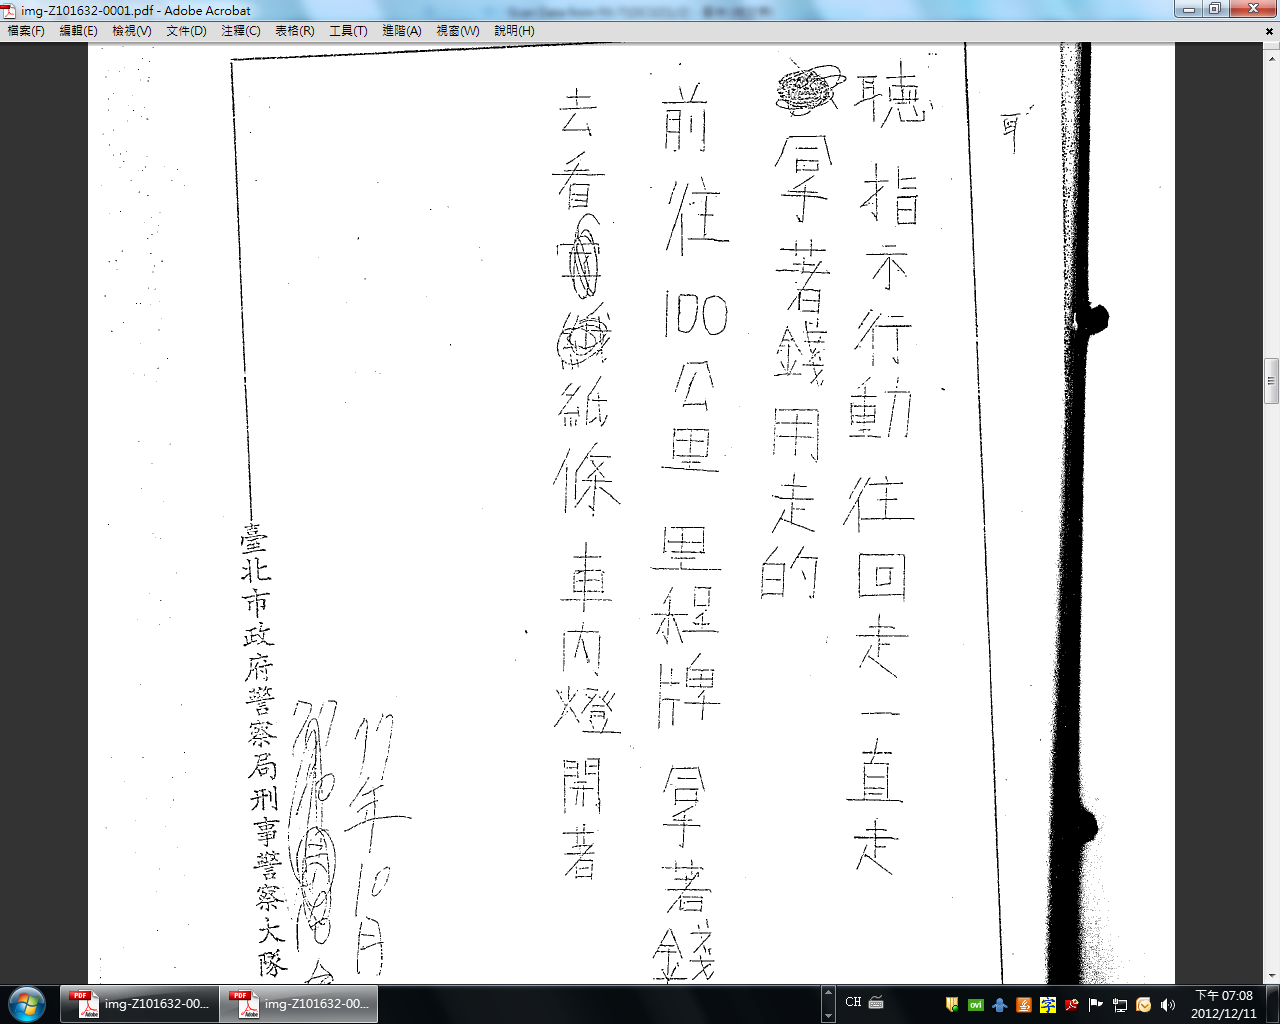 img-Z101632-0001.pdf - Adobe Acrobat
檔案(F) 編輯(E) 檢視(V) 文件(D) 注釋(C) 表格(R) 工具(T) 進階(A) 視窗(W) 說明(H)
聽指示行動往回走一直走
拿著錢用走的
前往100公里 里程牌 拿著錢
去看紙條 車內燈開著
77年10月
臺北市政府警察局刑事警察大隊
img-Z101632-00...
img-Z101632-00...
CH
下午 07:08
2012/12/11